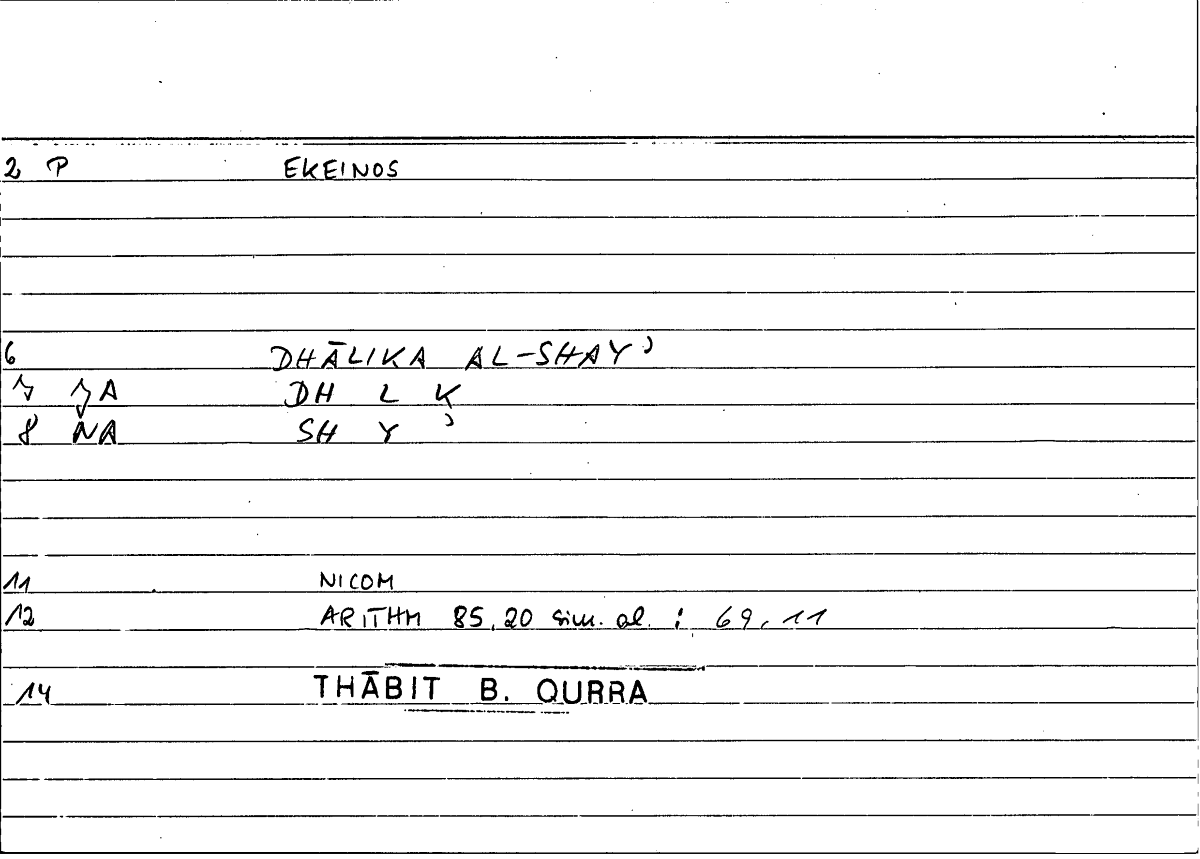 2 P EKEINOS
6 DHĀLIKA AL-SHAYʾ
7 A DH L K
8 NA SH Y ʾ
11 NICOM
12 ARITHM 85,20 sim. al. : 69,11
14 THĀBIT B. QURRA